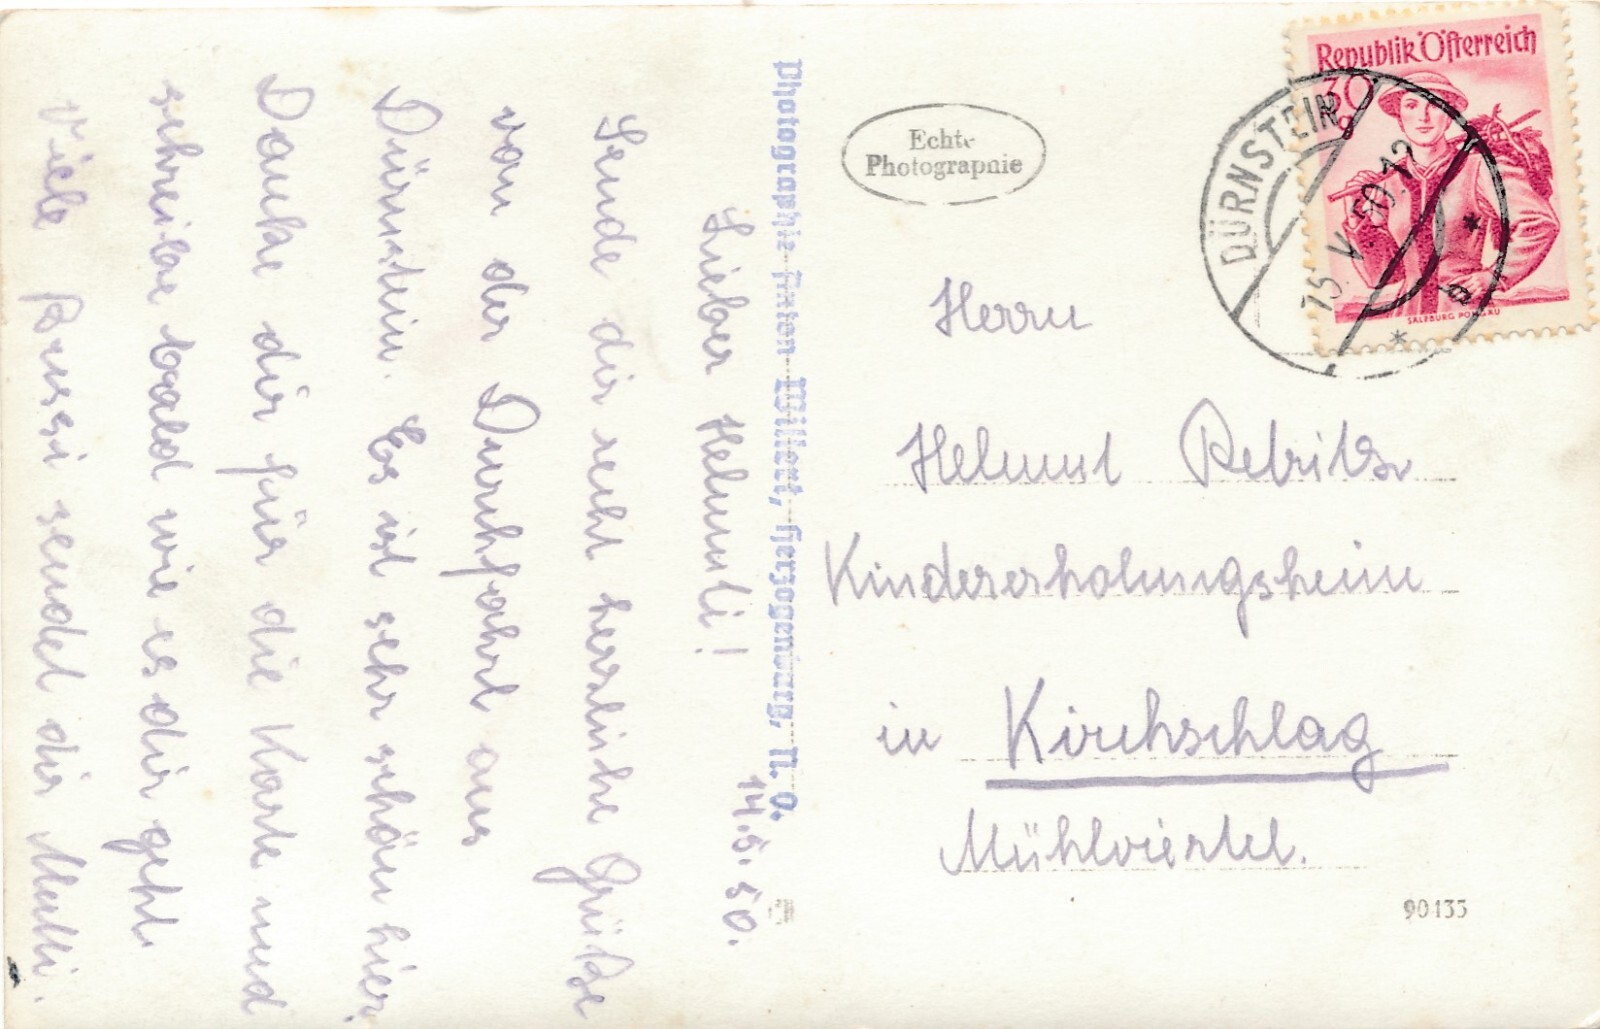 14.5.50.
Lieber Helmuti!
Sende dir recht herzliche Grüße
von der Durchfahrt aus
Dürnstein. Es ist sehr schön hier.
Danke dir für die Karte und
schreibe bald wie es dir geht.
Viele Bussi sendet dir Mutti.
Photographie Anton Willert, Herzogenburg, N. Ö.
Echte
Photographie
Republik Österreich
30 g
SALZBURG PONGAU
DÜRNSTEIN
15. V. 50. 12
a
Herrn
Helmut
Kindererholungsheim
in Kirchschlag
Mühlviertel.
90135